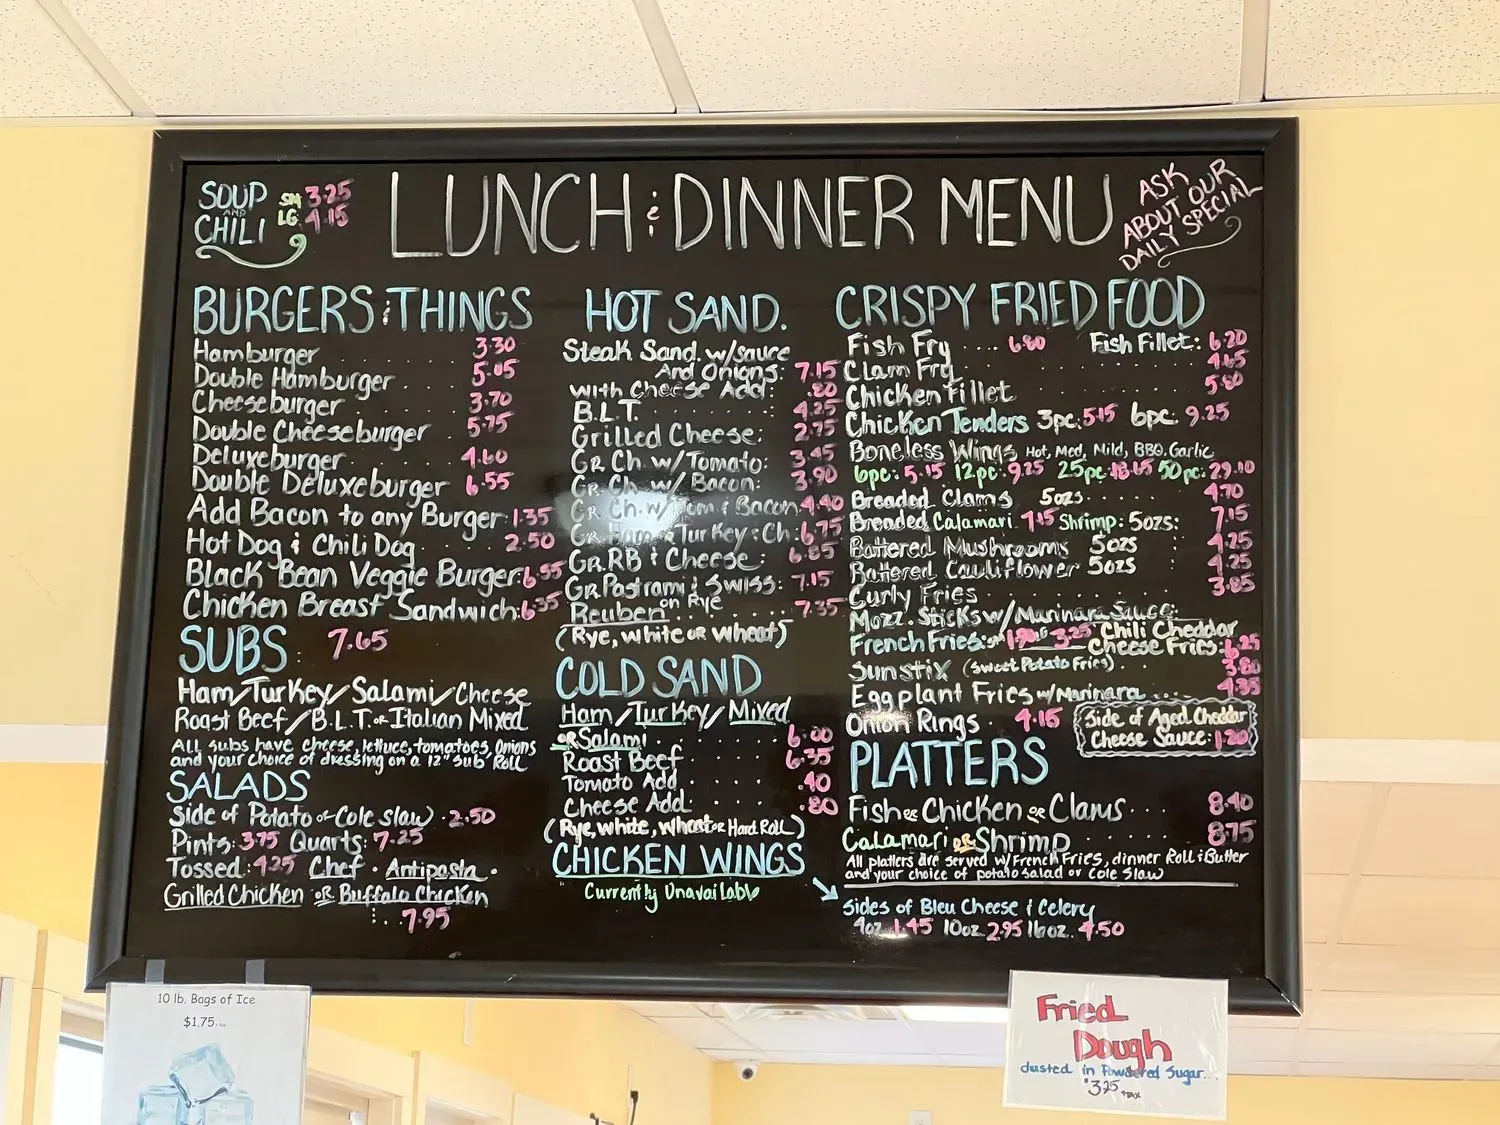 SOUP AND CHILI
SM 3.25
LG 4.15
LUNCH & DINNER MENU
ASK ABOUT OUR DAILY SPECIAL
BURGERS & THINGS
Hamburger 3.30
Double Hamburger 5.05
Cheeseburger 3.70
Double Cheeseburger 5.75
Deluxeburger 4.60
Double Deluxeburger 6.55
Add Bacon to any Burger: 1.35
Hot Dog & Chili Dog 2.50
Black Bean Veggie Burger: 6.55
Chicken Breast Sandwich: 6.35
SUBS 7.65
Ham/Turkey/Salami/Cheese
Roast Beef/B.L.T. or Italian Mixed
All subs have cheese, lettuce, tomatoes, onions
and your choice of dressing on a 12" sub Roll
SALADS
Side of Potato or Cole slaw . 2.50
Pints: 3.75 Quarts: 7.25
Tossed: 4.25 Chef . Antipasta .
Grilled Chicken or Buffalo Chicken
7.95
HOT SAND.
Steak Sand. w/sauce
And Onions: 7.15
with Cheese Add: .80
B.L.T. 4.25
Grilled Cheese: 2.75
Gr. Ch. w/Tomato: 3.45
Gr. Ch. w/ Bacon: 3.90
Gr. Ch. w/Tom & Bacon 4.40
Gr. Ham or Turkey & Ch: 6.75
Gr. RB & Cheese: 6.85
Gr Pastrami & Swiss: 7.15
Reuben on Rye 7.35
(Rye, white or wheat)
COLD SAND
Ham/Turkey/Mixed
or Salami 6.00
Roast Beef 6.35
Tomato Add .40
Cheese Add .80
(Rye, white, wheat or Hard Roll)
CHICKEN WINGS
Currently Unavailable
CRISPY FRIED FOOD
Fish Fry .... 6.80 Fish Fillet: 6.20
Clam Fry 4.65
Chicken Fillet 5.80
Chicken Tenders 3pc: 5.15 6pc. 9.25
Boneless Wings Hot, Med, Mild, BBQ, Garlic
6pc: 5.15 12pc: 9.25 25pc 18.65 50pc: 29.10
Breaded Clams 5ozs 4.70
Breaded Calamari 7.15 Shrimp: 5ozs: 7.15
Battered Mushrooms 5ozs 4.25
Battered Cauliflower 5ozs 4.25
Curly Fries 3.85
Mozz. Sticks w/Marinara Sauce:
French Fries: 3.25 Chili Cheddar
Cheese Fries: 6.25
Sunstix (Sweet Potato Fries) 3.80
Eggplant Fries w/Marinara .... 4.95
Onion Rings . 4.15
Side of Aged Cheddar
Cheese Sauce: 1.20
PLATTERS
Fish or Chicken or Clams 8.40
Calamari or Shrimp 8.75
All platters are served w/French Fries, dinner Roll & Butter
and your choice of potato salad or Cole Slaw
Sides of Bleu Cheese & Celery
4oz 1.45 10oz 2.95 16oz. 4.50
10 lb. Bags of Ice
$1.75 + tax
Fried
Dough
dusted in Powdered Sugar...
$3.25 + tax